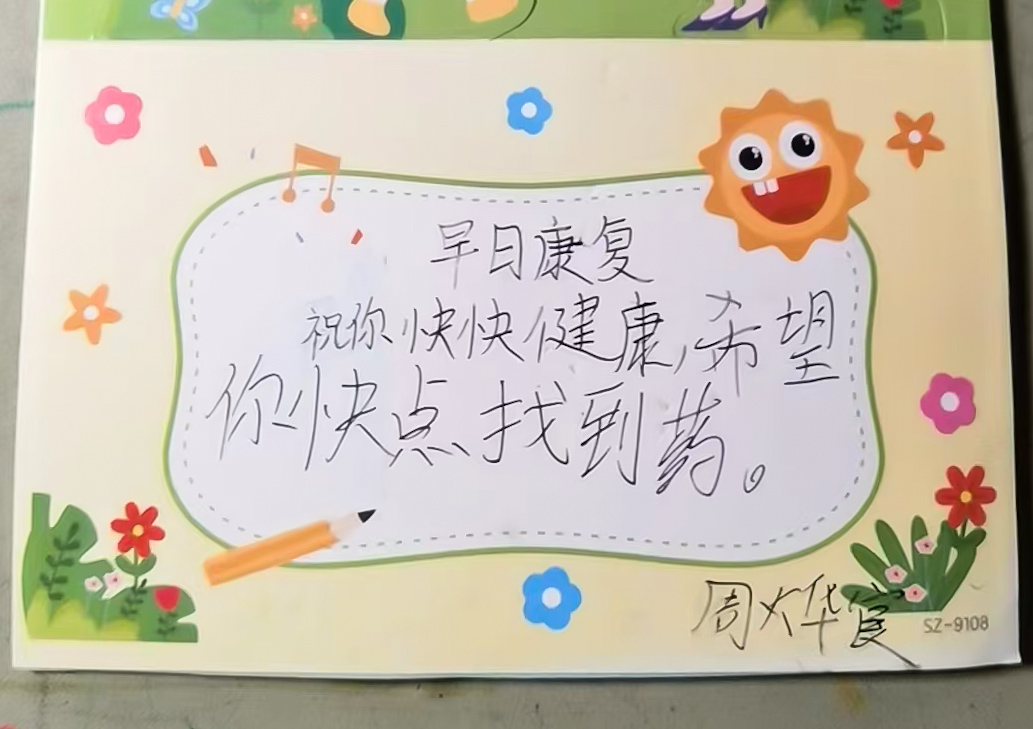 早日康复
祝你快快健康,希望
你快点找到药。
周烨宸
SZ-9108